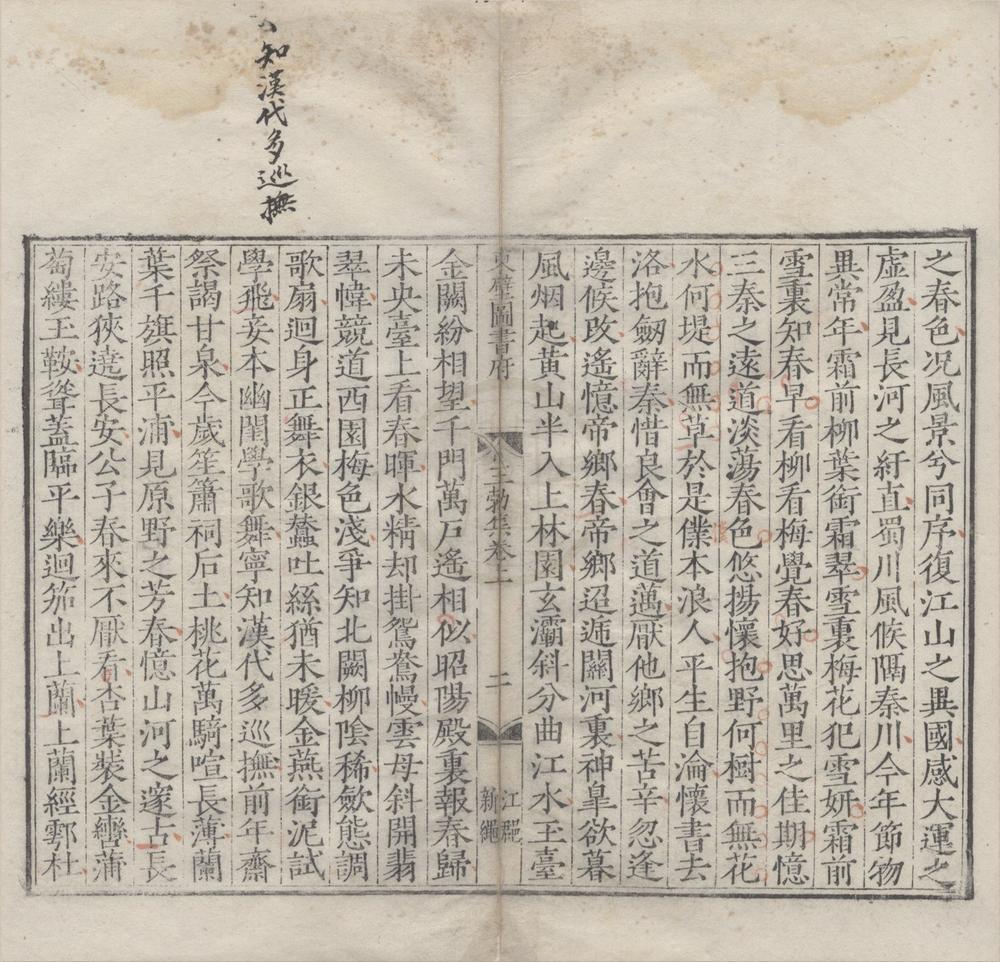 知漢代多巡撫
之春色况風景兮同序復江山之異國感大運之
虛盈見長河之紆直蜀川風候隔秦川今年節物
異常年霜前柳葉銜霜翠雪裏梅花犯雪妍霜前
雪裏知春早看柳看梅覺春好思萬里之佳期憶
三秦之遠道淡蕩春色悠揚懷抱野何樹而無花
水何堤而無草於是僕本浪人平生自淪懷書去
洛抱劒辭秦惜良會之道邁厭他鄉之苦辛忽逢
邊候改遙憶帝鄉春帝鄉迢遞關河裏神皐欲暮
風烟起黃山半入上林園玄灞斜分曲江水玉臺
東壁圖書府
王勃集卷二
二
江郢
新繩
金闕紛相望千門萬戶遙相似昭陽殿裏報春歸
未央臺上看春暉水精却掛鴛鴦幔雲母斜開翡
翠幃競道西園梅色淺爭知北闕柳陰稀歛態調
歌扇迴身正舞衣銀蠶吐絲猶未暖金燕銜泥試
學飛妾本幽閨學歌舞寧知漢代多巡撫前年齋
祭謁甘泉今歲笙簫祠后土桃花萬騎喧長薄蘭
葉千旗照平浦見原野之芳春憶山河之邃古長
安路狹遶長安公子春來不厭看杏葉裝金轡蒲
萄縷玉鞍聳蓋臨平樂迴笳出上蘭上蘭經鄠杜